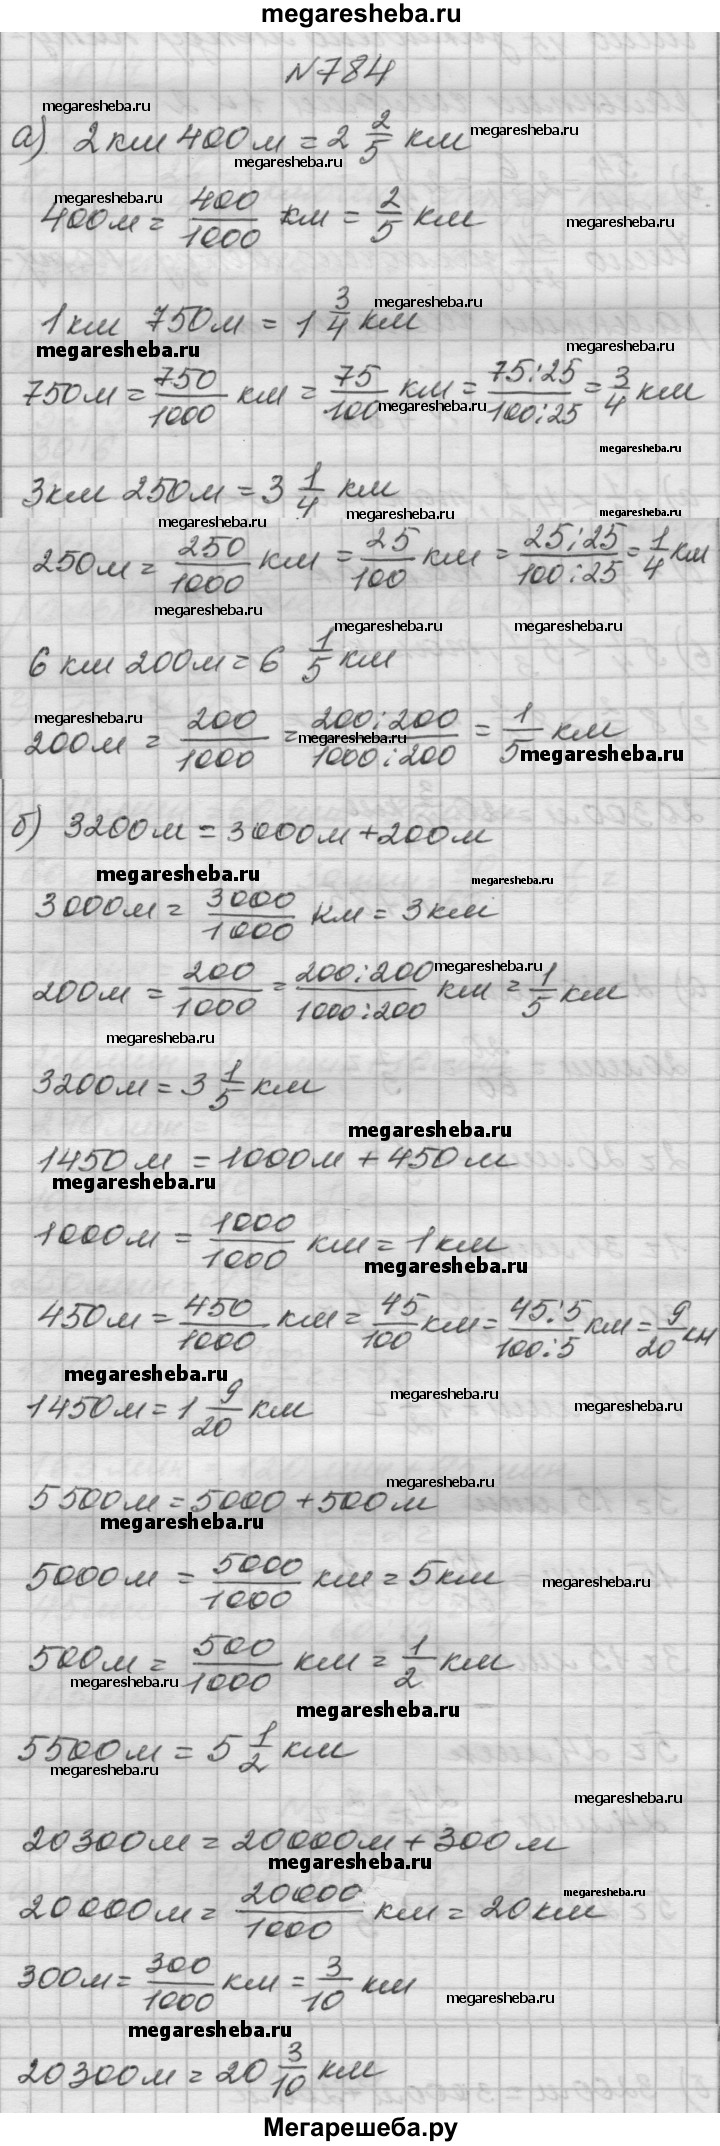 megaresheba.ru
№784
а) 2км 400м = 2 2/5 км
400м = 400/1000 км = 2/5 км
1км 750м = 1 3/4 км
750м = 750/1000 км = 75/100 км = 75:25/100:25 = 3/4 км
3км 250м = 3 1/4 км
250м = 250/1000 км = 25/100 км = 25:25/100:25 = 1/4 км
6 км 200м = 6 1/5 км
200м = 200/1000 = 200:200/1000:200 = 1/5 км
б) 3200м = 3000м + 200м
3000м = 3000/1000 км = 3км
200м = 200/1000 = 200:200/1000:200 км = 1/5 км
3200м = 3 1/5 км
1450м = 1000м + 450м
1000м = 1000/1000 км = 1км
450м = 450/1000 км = 45/100 км = 45:5/100:5 км = 9/20 км
1450м = 1 9/20 км
5500м = 5000 + 500м
5000м = 5000/1000 км = 5км
500м = 500/1000 км = 1/2 км
5500м = 5 1/2 км
20300м = 20000м + 300м
20000м = 20000/1000 км = 20км
300м = 300/1000 км = 3/10 км
20300м = 20 3/10 км
Мегарешеба.ру